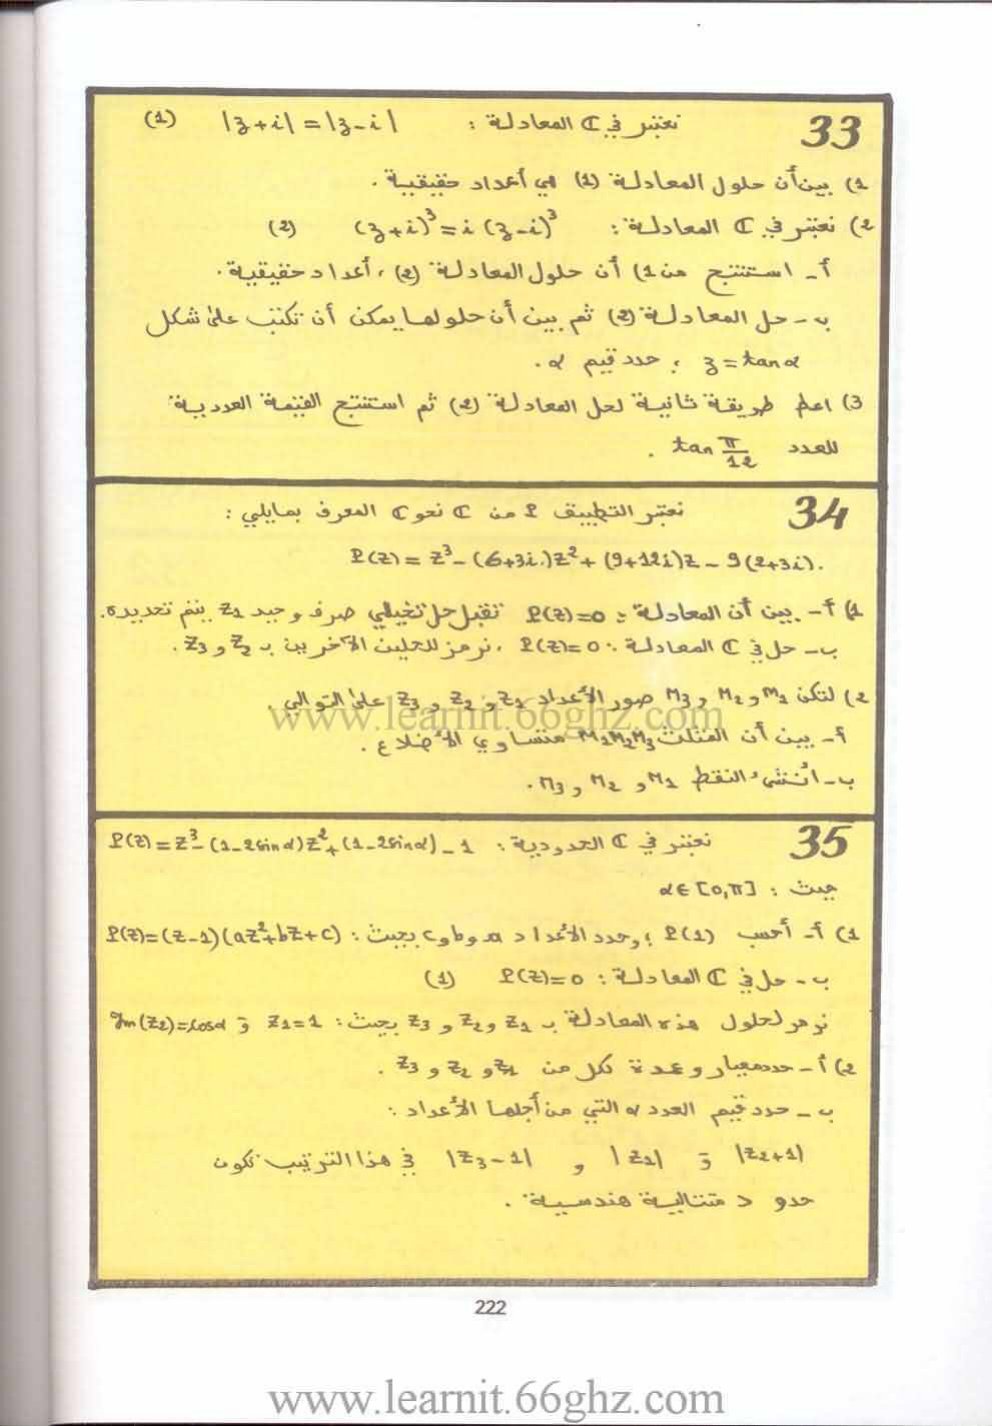 33 نعتبر في ℂ المعادلة : |z+i| = |z-i| (1)
1) بين أن حلول المعادلة (1) هي أعداد حقيقية.
2) نعتبر في ℂ المعادلة : (z+i)³ = i(z-i)³ (2)
أ- استنتج من 1) أن حلول المعادلة (2)، أعداد حقيقية.
ب- حل المعادلة (2) ثم بين أن حلولها يمكن أن تكتب على شكل
z = tan α ; حدد قيم α.
3) اعط طريقة ثانية لحل المعادلة (2) ثم استنتج القيمة العددية
للعدد tan π/12 .
34 نعتبر التطبيق P من ℂ نحو ℂ المعرف بمايلي :
P(z) = z³ - (6+3i)z² + (9+12i)z - 9(2+3i).
1) أ- بين أن المعادلة : P(z)=0 تقبل حل تخيلي صرف وحيد z₁ يتم تحديده.
ب- حل في ℂ المعادلة : P(z)=0 ، نرمز للحلين الآخرين بـ z₂ و z₃ .
2) لتكن M₁ و M₂ و M₃ صور الأعداد z₁ و z₂ و z₃ على التوالي .
أ- بين أن المثلث M₁M₂M₃ متساوي الأضلاع .
ب- أنشئ النقط M₁ و M₂ و M₃ .
35 نعتبر في ℂ الحدودية : P(z) = z³ - (1-2sinα)z² + (1-2sinα) - 1
حيث : α∈[0,π]
1) أ- أحسب P(1) ; وحدد الأعداد a و b و c بحيث : P(z)=(z-1)(az²+bz+c)
ب- حل في ℂ المعادلة : P(z)=0 (1)
نرمز لحلول هذه المعادلة بـ z₁ و z₂ و z₃ بحيث : z₁=1 و Im(z₂)=cosα
2) أ- حدد معيار وعمدة كل من z₁ و z₂ و z₃ .
ب- حدد قيم العدد α التي من أجلها الأعداد :
|z₂+1| و |z₁| و |z₃-1| في هذا الترتيب تكون
حدود متتالية هندسية .
222
www.learnit.66ghz.com
www.learnit.66ghz.com